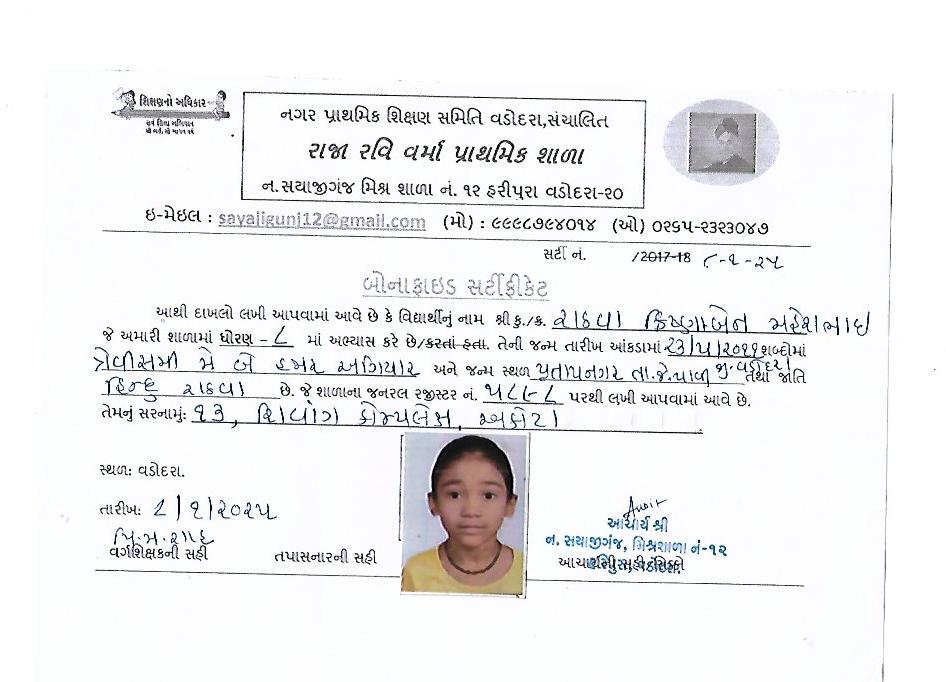 શિક્ષણનો અધિકાર
સર્વ શિક્ષા અભિયાન
સૌ ભણે, સૌ આગળ વધે
નગર પ્રાથમિક શિક્ષણ સમિતિ વડોદરા,સંચાલિત
રાજા રવિ વર્મા પ્રાથમિક શાળા
ન.સયાજીગંજ મિશ્ર શાળા નં. ૧૨ હરીપુરા વડોદરા-૨૦
ઇ-મેઇલ : sayajigunj12@gmail.com (મો) : ૯૯૯૮૭૯૪૦૧૪ (ઓ) ૦૨૬૫-૨૩૨૩૦૪૭
સર્ટી નં. /2017-18 ૮-૧-૨૫
બોનાફાઇડ સર્ટીફીકેટ
આથી દાખલો લખી આપવામાં આવે છે કે વિદ્યાર્થીનું નામ શ્રી કુ./ક્ર. રાઠવા ક્રિષ્ણાબેન મહેશભાઇ
જે અમારી શાળામાં ધોરણ - ૮ માં અભ્યાસ કરે છે/કરતાં હતા. તેની જન્મ તારીખ આંકડામાં ૨૩/૫/૨૦૧૧ શબ્દોમાં
ત્રેવીસમી મે બે હજાર અગિયાર અને જન્મ સ્થળ પ્રતાપનગર તા.જે.પાવી જી. તથા જાતિ
હિન્દુ રાઠવા છે. જે શાળાના જનરલ રજીસ્ટર નં. ૫૮૯૮ પરથી લખી આપવામાં આવે છે.
તેમનું સરનામું: ૧૩, શિવાંગ કોમ્પલેક્ષ, અકોટા
સ્થળ: વડોદરા.
તારીખ: ૮/૧/૨૦૨૫
વર્ગશિક્ષકની સહી
તપાસનારની સહી
આચાર્ય શ્રી
ન. સયાજીગંજ, મિશ્રશાળા નં-૧૨